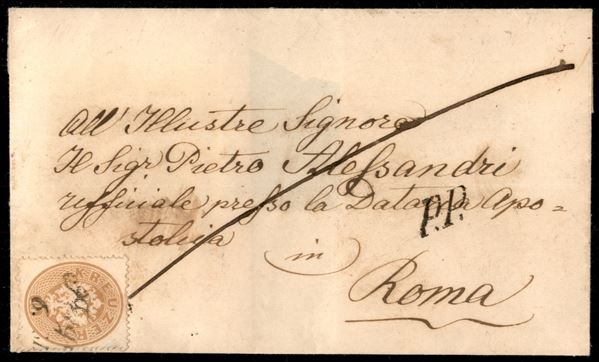 All' Illustre Signore
Il Sigr Pietro Alessandri
ufficiale presso la Dataria Apo=
stolica
in
Roma
P.P.
KREUZER